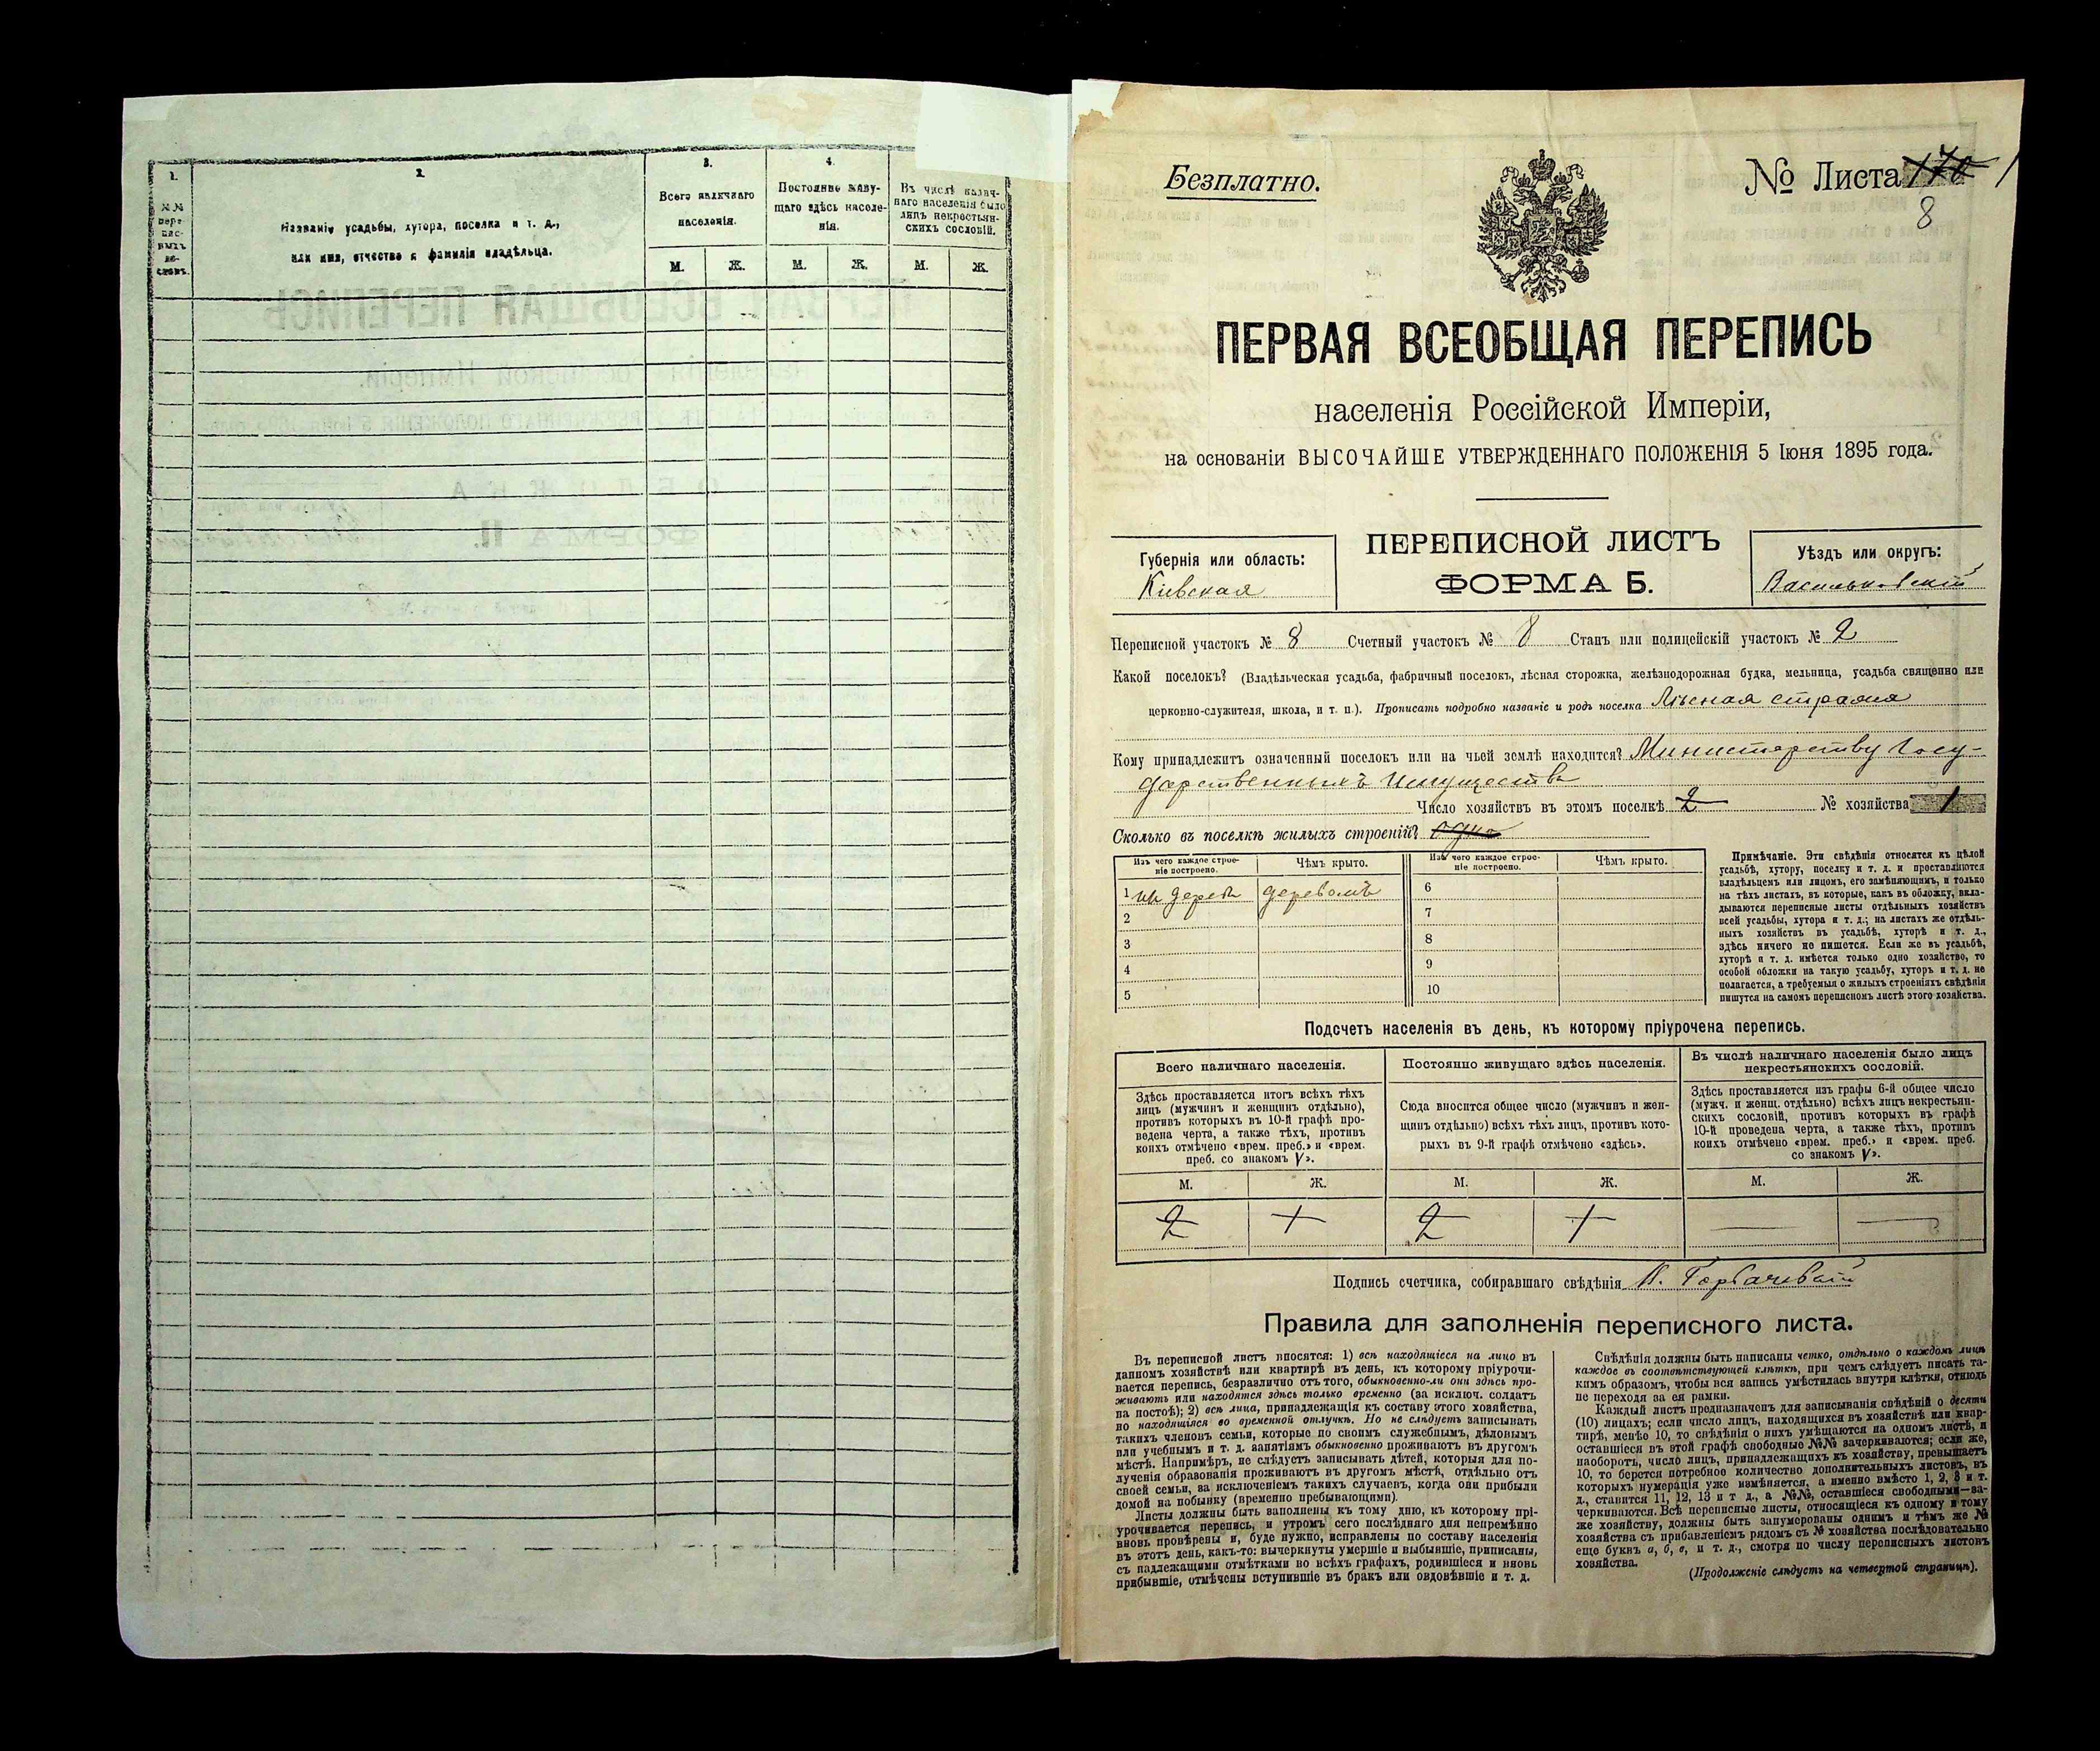 1.
№№
пере-
пис-
ныхъ
ли-
стовъ.
2.
Названіе усадьбы, хутора, поселка и т. д.,
или имя, отчество и фамилія владѣльца.
3.
Всего наличнаго
населенія.
М. Ж.
4.
Постоянно живу-
щаго здѣсь населе-
нія.
М. Ж.
Въ числѣ налич-
наго населенія было
лицъ некрестьян-
скихъ сословій.
М. Ж.
Безплатно.
№ Листа 1
8
ПЕРВАЯ ВСЕОБЩАЯ ПЕРЕПИСЬ
населенія Россійской Имперіи,
на основаніи ВЫСОЧАЙШЕ УТВЕРЖДЕННАГО ПОЛОЖЕНІЯ 5 Іюня 1895 года.
Губернія или область:
Кіевская
ПЕРЕПИСНОЙ ЛИСТЪ
ФОРМА Б.
Уѣздъ или округъ:
Васильковскій
Переписной участокъ № 8 Счетный участокъ № 8 Станъ или полицейскій участокъ № 2
Какой поселокъ? (Владѣльческая усадьба, фабричный поселокъ, лѣсная сторожка, желѣзнодорожная будка, мельница, усадьба священно или
церковно-служителя, школа, и т. п.). Прописать подробно названіе и родъ поселка Лѣсная стража
Кому принадлежитъ означенный поселокъ или на чьей землѣ находится? Министерству Госу-
дарственныхъ Имуществъ
Число хозяйствъ въ этомъ поселкѣ 2 № хозяйства 1
Сколько въ поселкѣ жилыхъ строеній? одно
Изъ чего каждое строе-
ніе построено.
Чѣмъ крыто.
Изъ чего каждое строе-
ніе построено.
Чѣмъ крыто.
1 изъ дерева деревомъ 6
2 7
3 8
4 9
5 10
Примѣчаніе. Эти свѣдѣнія относятся къ цѣлой
усадьбѣ, хутору, поселку и т. д. и проставляются
владѣльцемъ или лицомъ, его замѣняющимъ, и только
на тѣхъ листахъ, въ которые, какъ въ обложку, вкла-
дываются переписные листы отдѣльныхъ хозяйствъ
всей усадьбы, хутора и т. д.; на листахъ же отдѣль-
ныхъ хозяйствъ въ усадьбѣ, хуторѣ и т. д.,
здѣсь ничего не пишется. Если же въ усадьбѣ,
хуторѣ и т. д. имѣется только одно хозяйство, то
особой обложки на такую усадьбу, хуторъ и т. д. не
полагается, а требуемыя о жилыхъ строеніяхъ свѣдѣнія
пишутся на самомъ переписномъ листѣ этого хозяйства.
Подсчетъ населенія въ день, къ которому пріурочена перепись.
Всего наличнаго населенія.
Здѣсь проставляется итогъ всѣхъ тѣхъ
лицъ (мужчинъ и женщинъ отдѣльно),
противъ которыхъ въ 10-й графѣ про-
ведена черта, а также тѣхъ, противъ
коихъ отмѣчено «врем. преб.» и «врем.
преб. со знакомъ V».
М. Ж.
2 1
Постоянно живущаго здѣсь населенія.
Сюда вносится общее число (мужчинъ и жен-
щинъ отдѣльно) всѣхъ тѣхъ лицъ, противъ кото-
рыхъ въ 9-й графѣ отмѣчено «здѣсь».
М. Ж.
2 1
Въ числѣ наличнаго населенія было лицъ
некрестьянскихъ сословій.
Здѣсь проставляется изъ графы 6-й общее число
(мужч. и женщ. отдѣльно) всѣхъ лицъ некрестьян-
скихъ сословій, противъ которыхъ въ графѣ
10-й проведена черта, а также тѣхъ, противъ
коихъ отмѣчено «врем. преб.» и «врем. преб.
со знакомъ V».
М. Ж.
Подпись счетчика, собиравшаго свѣдѣнія
Правила для заполненія переписного листа.
Въ переписной листъ вносятся: 1) всѣ находящіеся на лицо въ
данномъ хозяйствѣ или квартирѣ въ день, къ которому пріурочи-
вается перепись, безразлично отъ того, обыкновенно-ли они здѣсь про-
живаютъ или находятся здѣсь только временно (за исключ. солдатъ
на постоѣ); 2) всѣ лица, принадлежащія къ составу этого хозяйства,
но находящіяся во временной отлучкѣ. Но не слѣдуетъ записывать
такихъ членовъ семьи, которые по своимъ служебнымъ, дѣловымъ
или учебнымъ и т. д. занятіямъ обыкновенно проживаютъ въ другомъ
мѣстѣ. Напримѣръ, не слѣдуетъ записывать дѣтей, которыя для по-
лученія образованія проживаютъ въ другомъ мѣстѣ, отдѣльно отъ
своей семьи, за исключеніемъ такихъ случаевъ, когда они прибыли
домой на побывку (временно пребывающими).
Листы должны быть заполнены къ тому дню, къ которому прі-
урочивается перепись, и утромъ сего послѣдняго дня непремѣнно
вновь провѣрены и, буде нужно, исправлены по составу населенія
въ этотъ день, какъ-то: вычеркнуты умершіе и выбывшіе, приписаны,
съ надлежащими отмѣтками во всѣхъ графахъ, родившіеся и вновь
прибывшіе, отмѣчены вступившіе въ бракъ или овдовѣвшіе и т. д.
Свѣдѣнія должны быть написаны четко, отдѣльно о каждомъ лицѣ
каждое въ соотвѣтствующей клѣткѣ, при чемъ слѣдуетъ писать та-
кимъ образомъ, чтобы вся запись умѣстилась внутри клѣтки, отнюдь
не переходя за ея рамки.
Каждый листъ предназначенъ для записыванія свѣдѣній о десяти
(10) лицахъ; если число лицъ, находящихся въ хозяйствѣ или квар-
тирѣ, менѣе 10, то свѣдѣнія о нихъ умѣщаются на одномъ листѣ, и
оставшіеся въ этой графѣ свободные №№ зачеркиваются; если же,
наоборотъ, число лицъ, принадлежащихъ къ хозяйству, превышаетъ
10, то берется потребное количество дополнительныхъ листовъ, въ
которыхъ нумерація уже измѣняется, а именно вмѣсто 1, 2, 3 и т.
д., ставится 11, 12, 13 и т д., а №№, оставшіеся свободными—за-
черкиваются. Всѣ переписные листы, относящіеся къ одному и тому
же хозяйству, должны быть занумерованы однимъ и тѣмъ же №
хозяйства съ прибавленіемъ рядомъ съ № хозяйства послѣдовательно
еще буквъ а, б, в, и т. д., смотря по числу переписныхъ листовъ
хозяйства.
(Продолженіе слѣдуетъ на четвертой страницѣ).